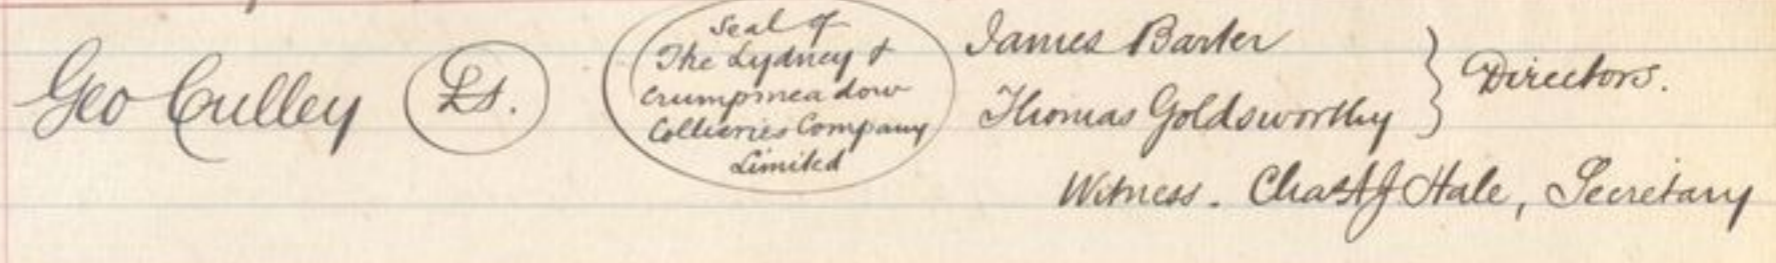 Geo Culley
Ls.
Seal of
The Lydney &
Crumpmeadow
Collieries Company
Limited
James Barter
Thomas Goldsworthy
Directors.
Witness. Hale, Secretary